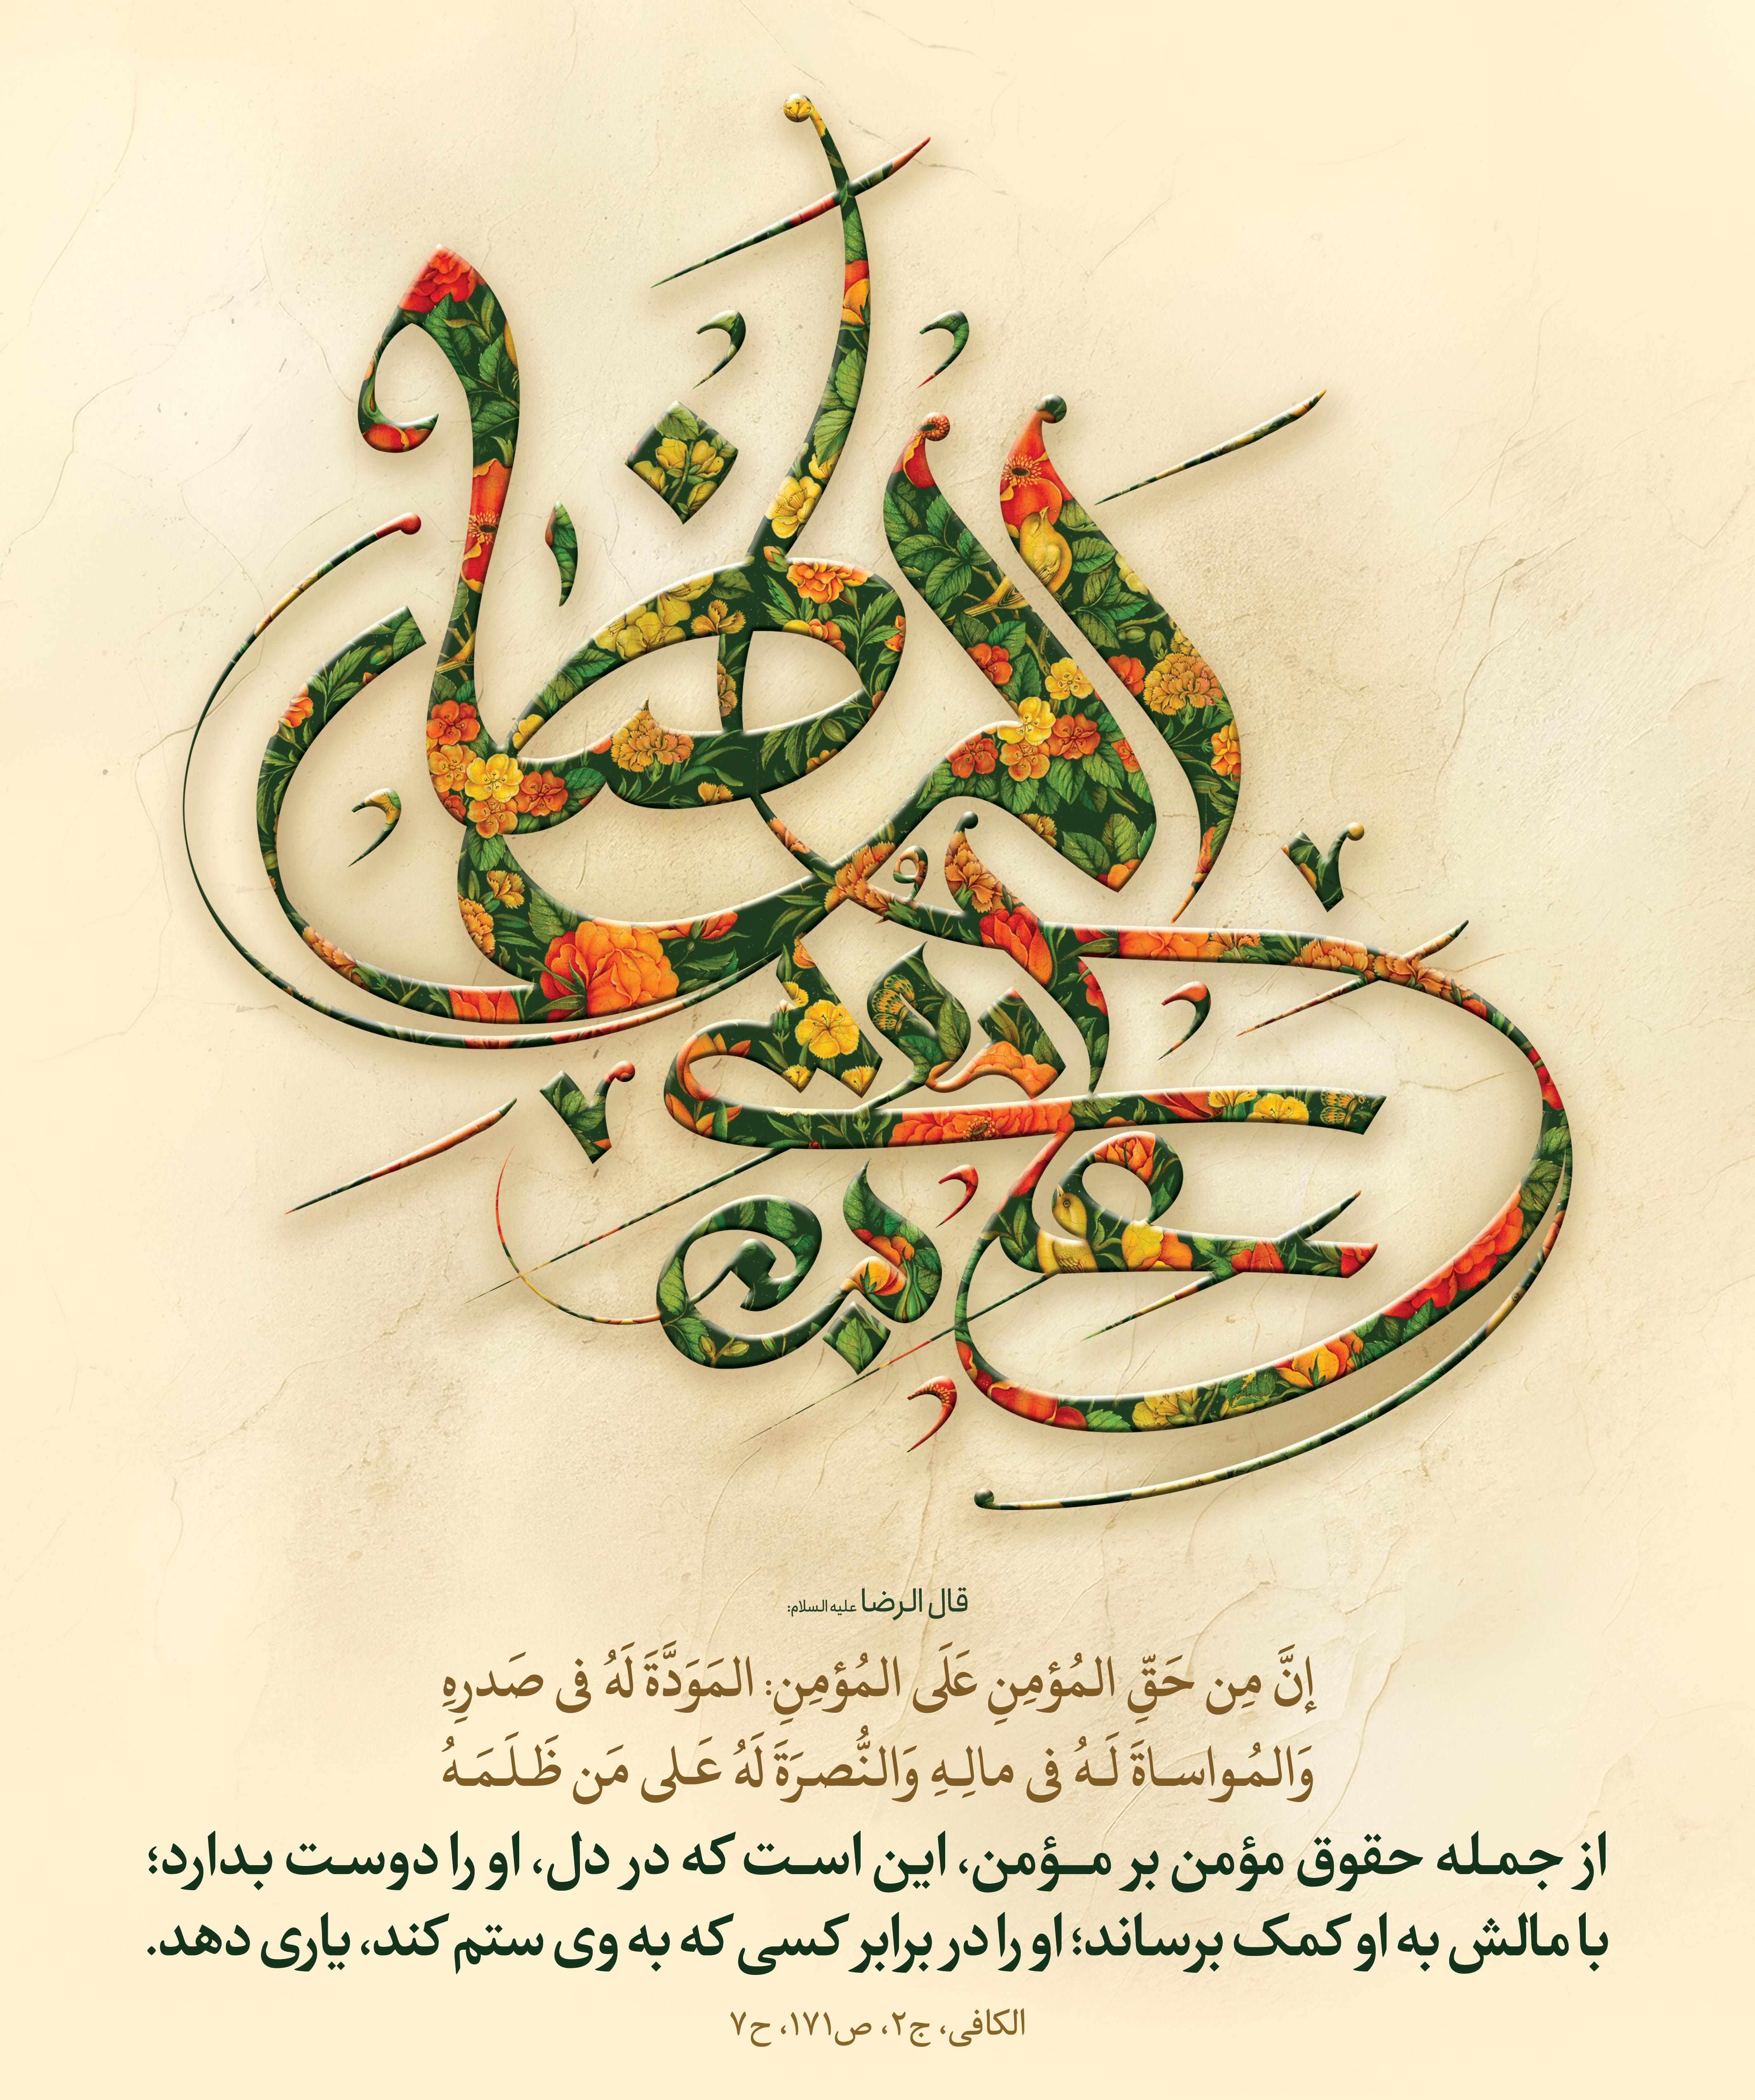 الرضا
قال الرضا علیه السلام:
إنَّ مِن حَقِّ المُؤمِنِ عَلَی المُؤمِنِ: المَوَدَّةَ لَهُ فی صَدرِهِ
وَالمُواساةَ لَهُ فی مالِهِ وَالنُّصرَةَ لَهُ عَلی مَن ظَلَمَهُ
از جمله حقوق مؤمن بر مؤمن، این است که در دل، او را دوست بدارد؛
با مالش به او کمک برساند؛ او را در برابر کسی که به وی ستم کند، یاری دهد.
الکافی، ج۲، ص۱۷۱، ح۷